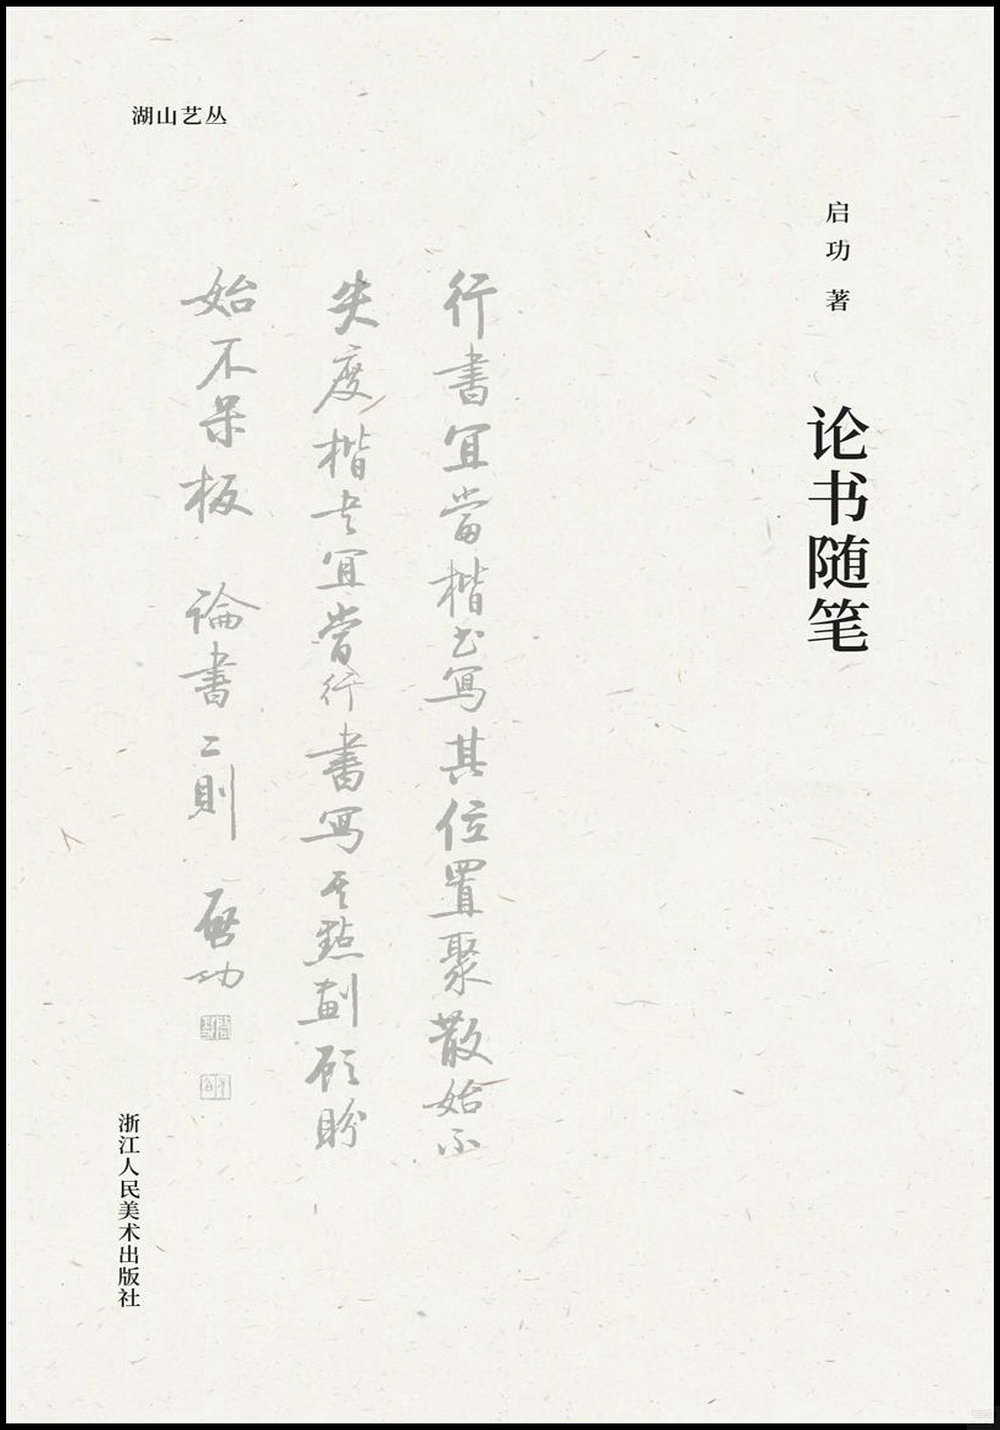 湖山艺丛
启功 著
论书随笔
行書宜當楷书寫其位置聚散始不
失度楷书宜當行書寫其點劃顧盼
始不呆板 論書二則 啟功
浙江人民美术出版社